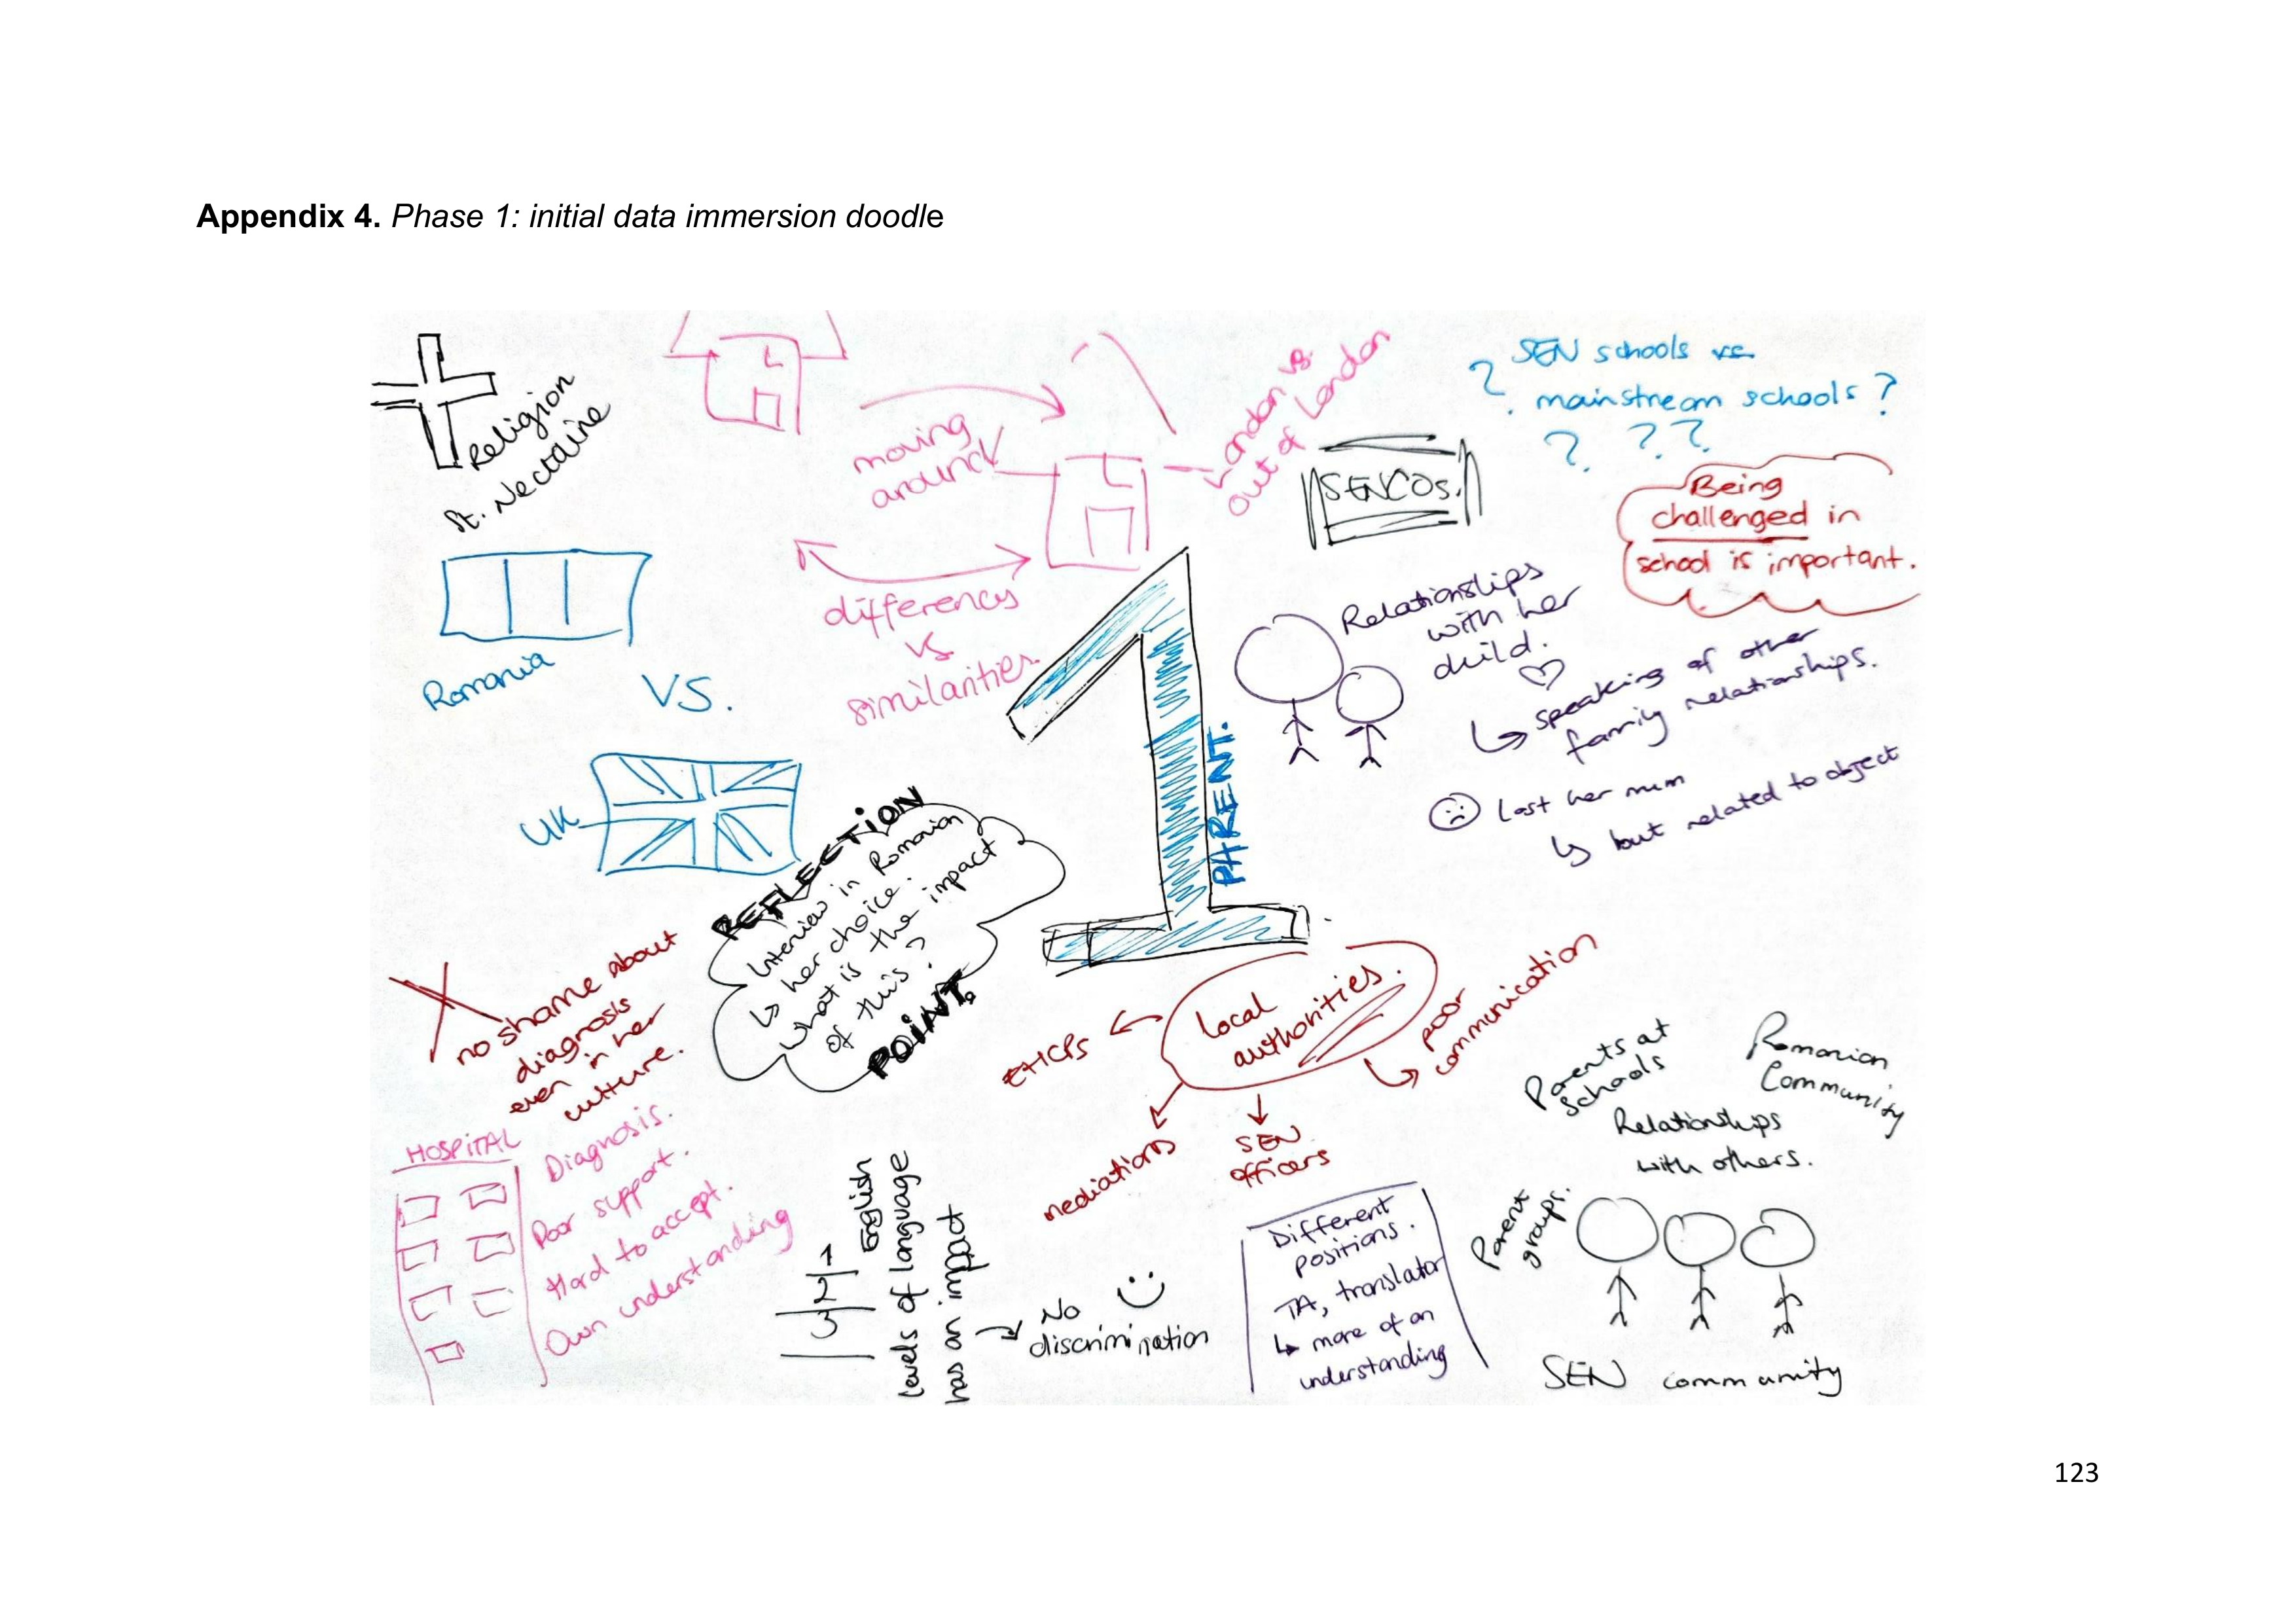 Appendix 4. Phase 1: initial data immersion doodle
Religion
St. Nectarine
moving
around
London vs.
out of London
differences
vs
similarities
SEN schools vs
mainstream schools?
? ? ? ?
SENCOs.
Being
challenged in
school is important.
Romania
VS.
UK
1
PARENT.
Relationships
with her
child.
↳ speaking of other
family relationships.
Lost her mum
↳ but related to object
REFLECTION
Interview in Romanian
↳ her choice.
What is the impact
of this?
POINT.
X
no shame about
diagnosis
even in her
culture.
HOSPITAL
Diagnosis.
Poor support.
Hard to accept.
Own understanding
local
authorities.
EHCPs
mediations
SEN
officers
poor
communication
1
2
3
English
Levels of language
has an impact
No
discrimination
Different
positions.
TA, translator
↳ more of an
understanding
Parents at
schools
Romanian
Community
Relationships
with others.
Parent
groups.
SEN community
123